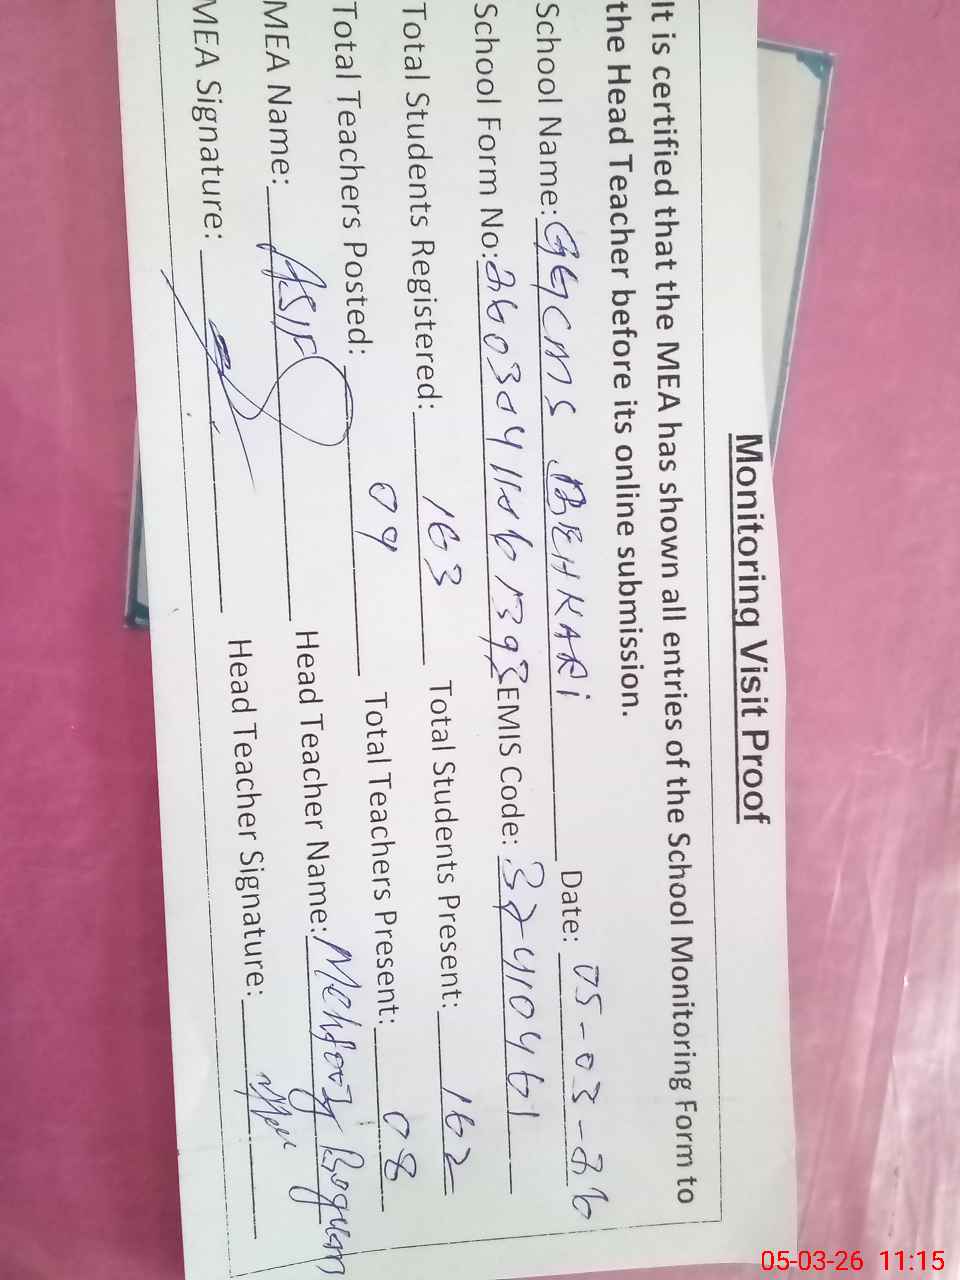 Monitoring Visit Proof
It is certified that the MEA has shown all entries of the School Monitoring Form to
the Head Teacher before its online submission.
School Name: GGCMS BEHKARI Date: 05-03-26
School Form No: EMIS Code: 37410461
Total Students Registered: 163 Total Students Present: 162
Total Teachers Posted: 09 Total Teachers Present: 08
MEA Name: ASIF Head Teacher Name: Mehfooz Begum
MEA Signature: Head Teacher Signature:
05-03-26 11:15